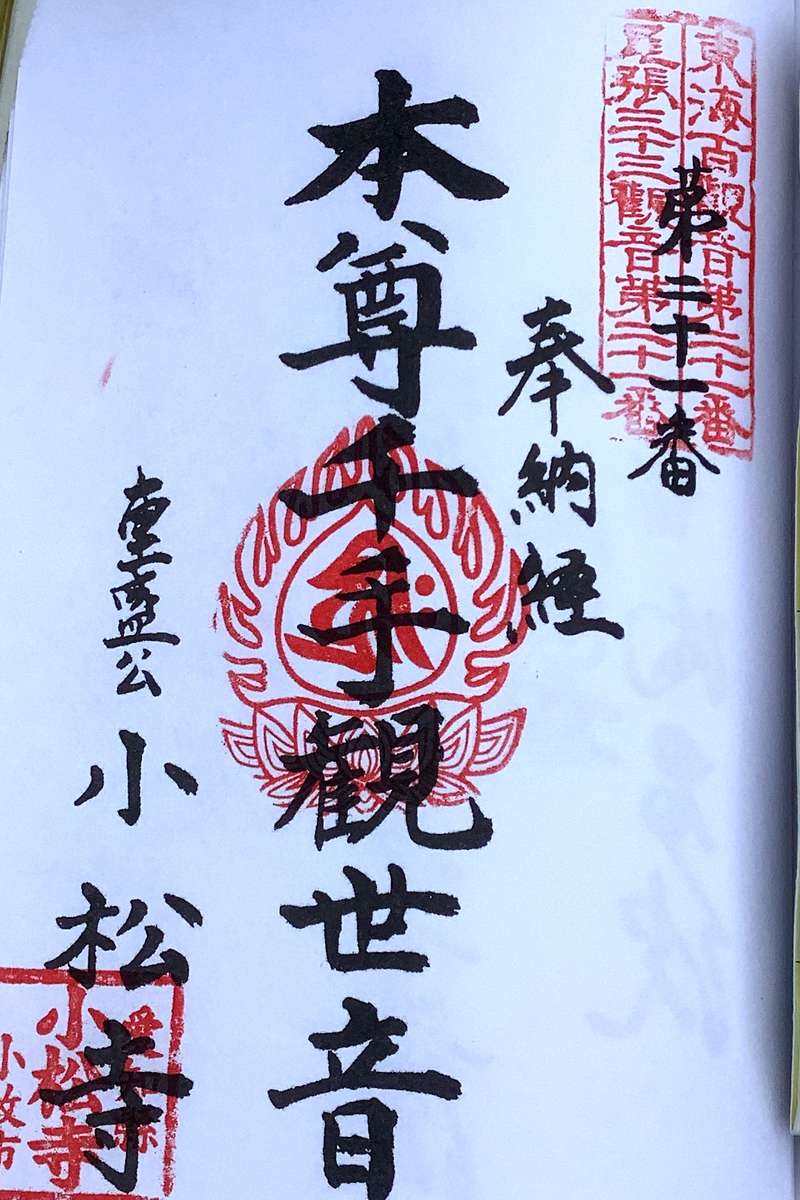 東海百觀音第二十一番
尾張三十三觀音第二十一番
第二十一番
奉納経
本尊千手觀世音
重盛公
小松寺
愛知縣
小松寺
小牧市